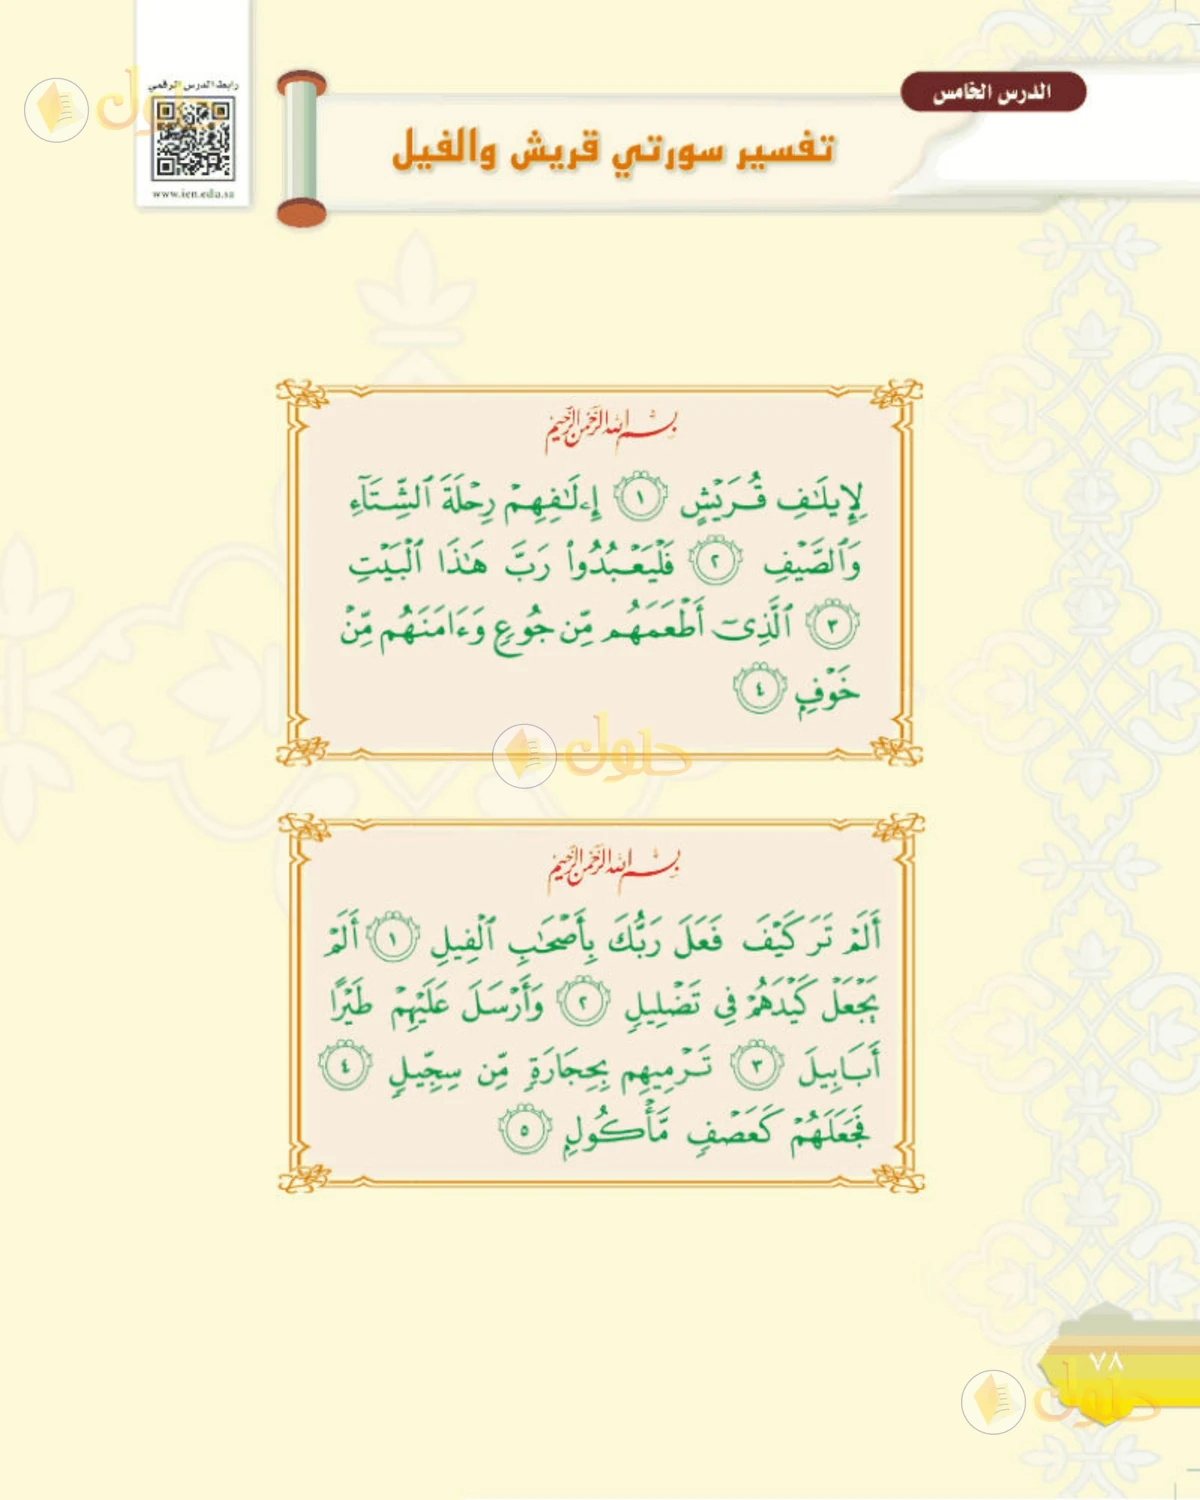 رابط الدرس الرقمي
www.ien.edu.sa
الدرس الخامس
تفسير سورتي قريش والفيل
بِسْمِ ٱللَّهِ ٱلرَّحْمَٰنِ ٱلرَّحِيمِ
لِإِيلَٰفِ قُرَيْشٍ ١ إِۦلَٰفِهِمْ رِحْلَةَ ٱلشِّتَآءِ
وَٱلصَّيْفِ ٢ فَلْيَعْبُدُوا۟ رَبَّ هَٰذَا ٱلْبَيْتِ
٣ ٱلَّذِىٓ أَطْعَمَهُم مِّن جُوعٍ وَءَامَنَهُم مِّنْ
خَوْفٍۭ ٤
حلول
بِسْمِ ٱللَّهِ ٱلرَّحْمَٰنِ ٱلرَّحِيمِ
أَلَمْ تَرَ كَيْفَ فَعَلَ رَبُّكَ بِأَصْحَٰبِ ٱلْفِيلِ ١ أَلَمْ
يَجْعَلْ كَيْدَهُمْ فِى تَضْلِيلٍ ٢ وَأَرْسَلَ عَلَيْهِمْ طَيْرًا
أَبَابِيلَ ٣ تَرْمِيهِم بِحِجَارَةٍ مِّن سِجِّيلٍ ٤
فَجَعَلَهُمْ كَعَصْفٍ مَّأْكُولٍۭ ٥
٧٨
حلول
حلول